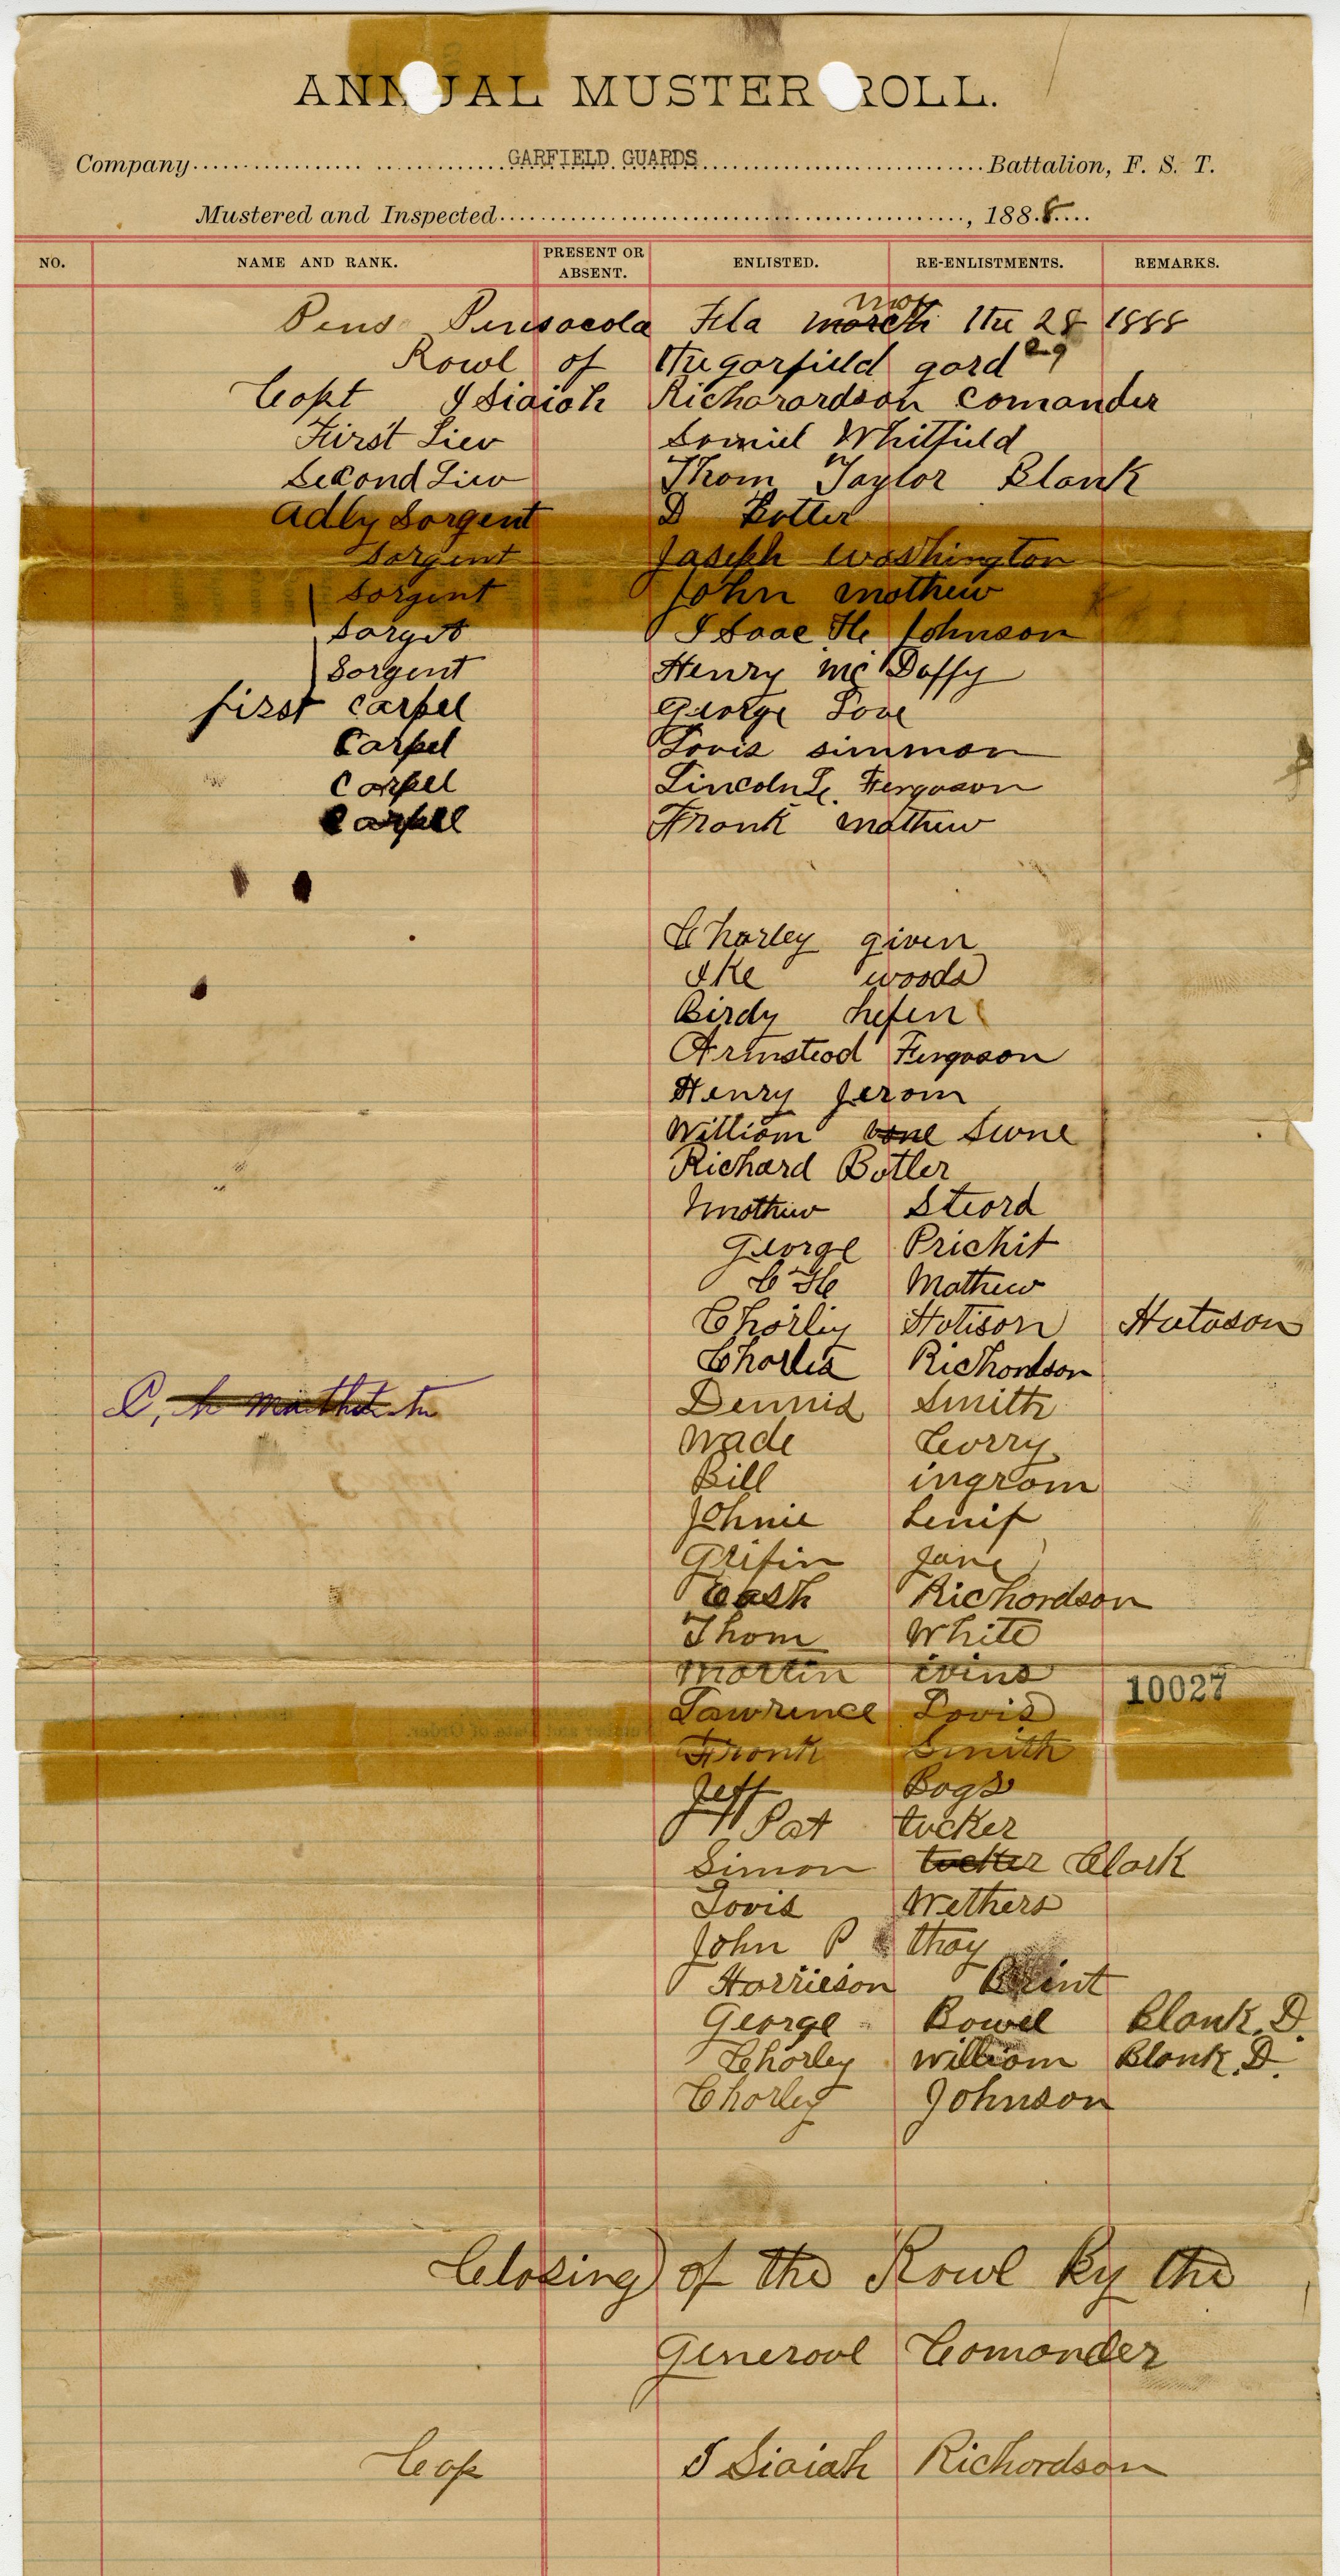 ANNUAL MUSTER ROLL.
Company GARFIELD GUARDS Battalion, F. S. T.
Mustered and Inspected , 1888
NO. NAME AND RANK. PRESENT OR ABSENT. ENLISTED. RE-ENLISTMENTS. REMARKS.
may
Pens Pensacola Fla march the 28 1888
Rowl of the garfield gard 29
Capt ISiaiah Richarardson Comander
First Liev Samiel Whitfield
Second Liev Thom Taylor Blank
Adly Sargent D Butler
Sargent Joseph Washington
Sargent John mathew
Sarget ISaac He Johnson
Sargent Henry mc Duffy
first Carpel George Love
Carpel Lovis simmon
Carpel Lincoln Le. Ferguson
Carpel Frank mathew
Charley given
Ike woods
Birdy hefen
Armstead Ferguson
Henry Jerom
William vone Swne
Richard Butler
mathew Steard
George Prichit
C He Mathew
Charley Hutison Hutason
Charles Richardson
C, h Matthew Dennis Smith
Wade Curry
Bill ingram
Johnie Lenif
Grifin Jane
Cash Richardson
Thom White
Martin ivins
10027
Lawrence Lovis
Frank Smith
Jeff Bogs
Pat tucker
Simon tucker Clark
Lovis Wethers
John P thay
Harrieson Brint
George Bowel Blank. D.
Charley William Blank. D.
Charley Johnson
Closing of the Rowl By the
Generoul Comander
Cap ISiaiah Richardson